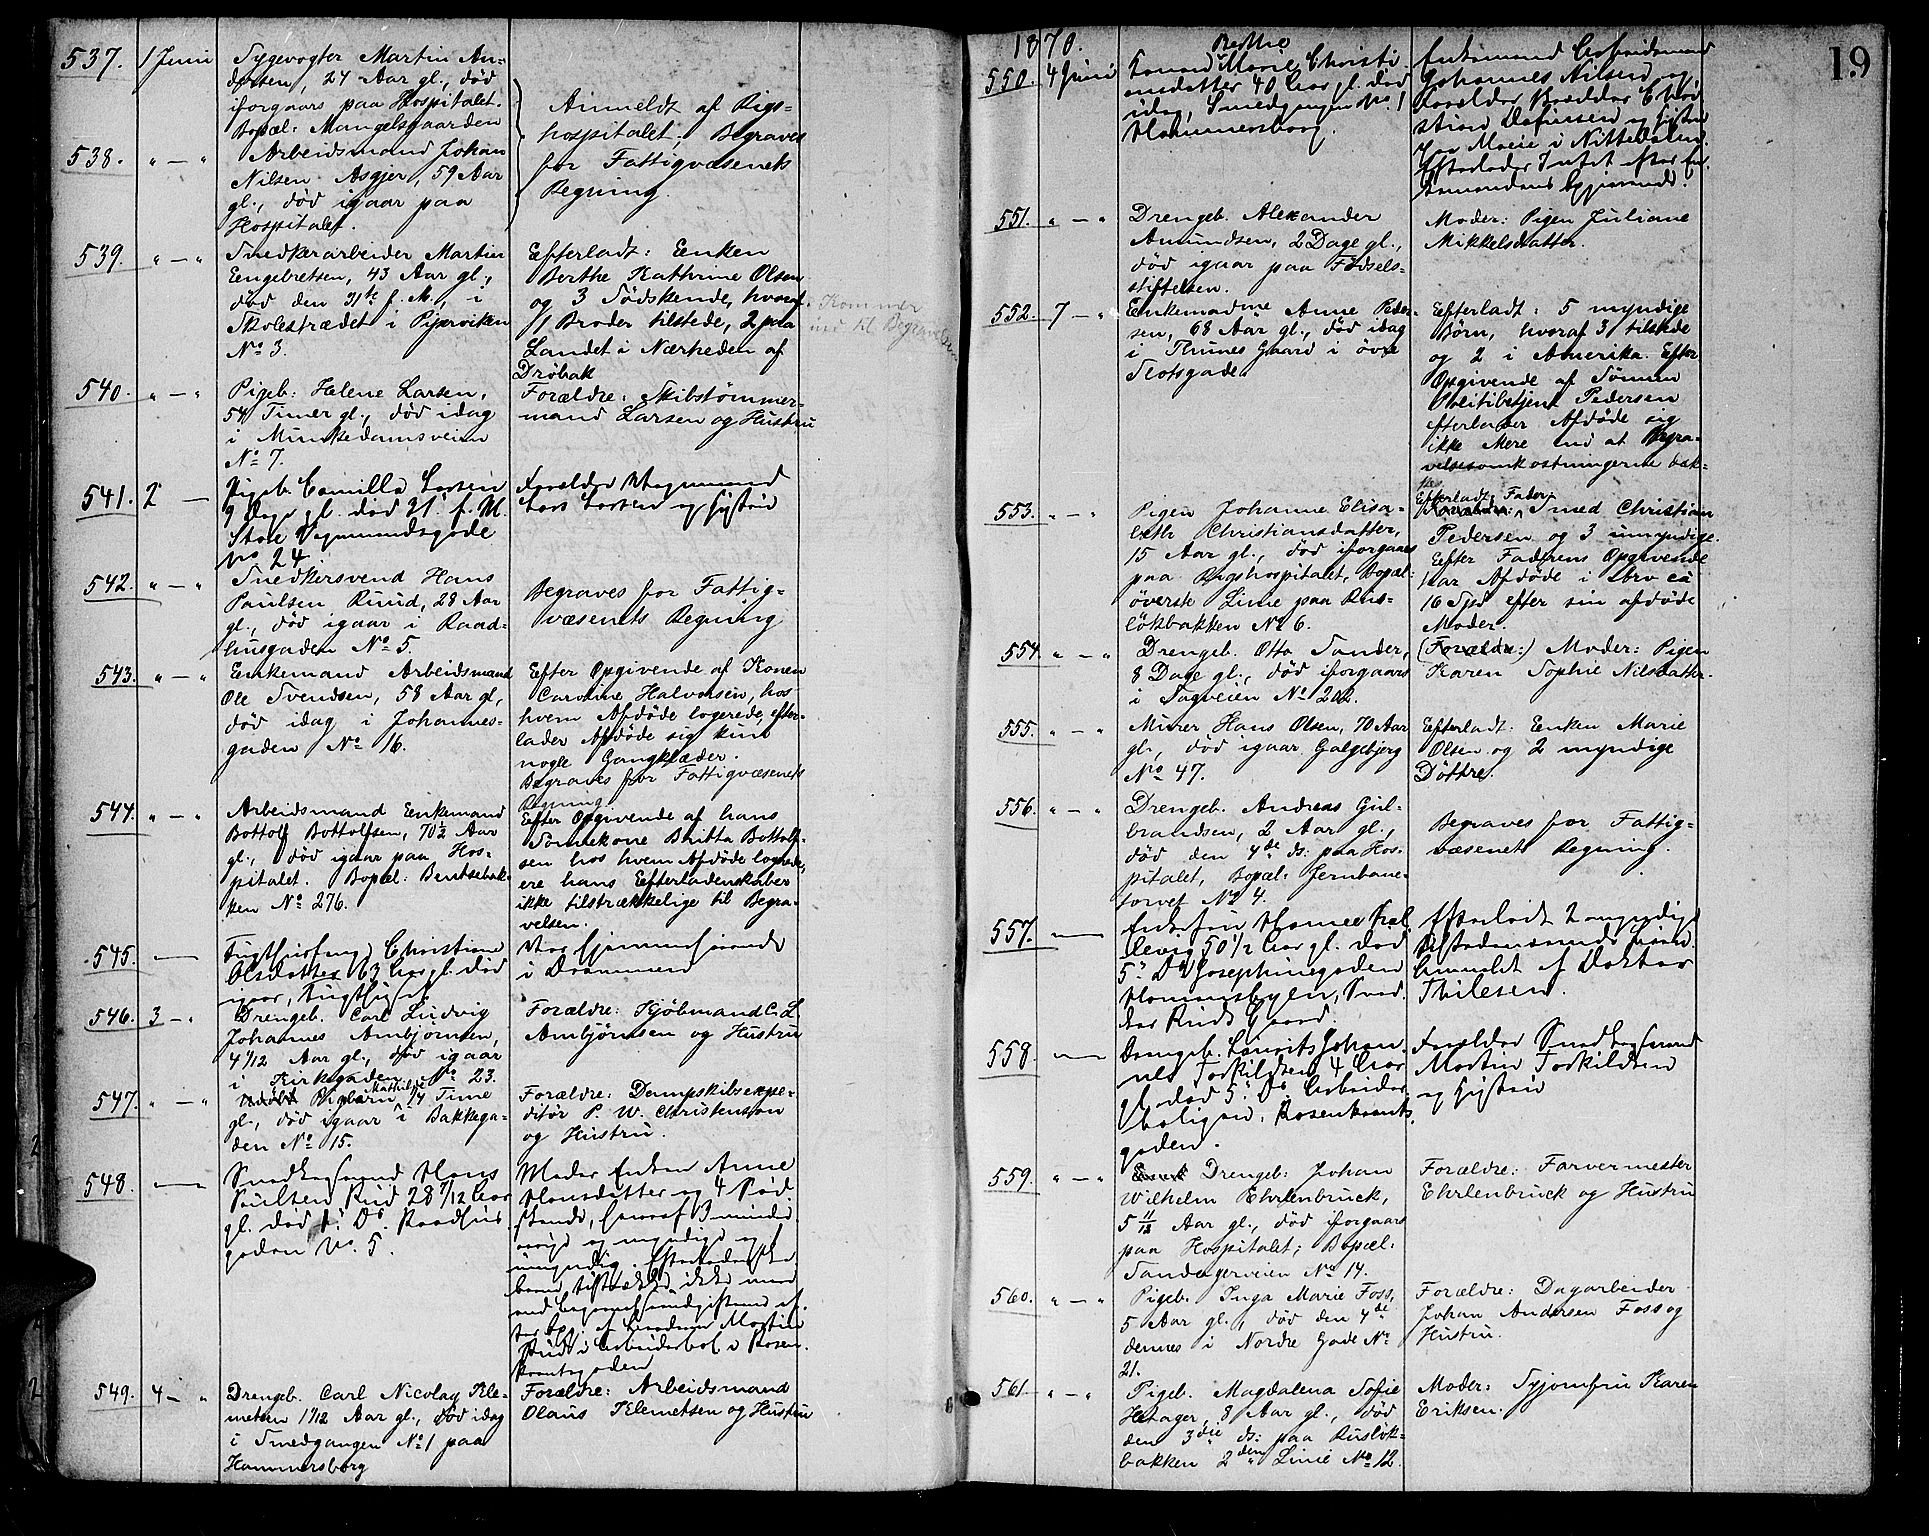 537. 1 Juni Sygevogter Martin An-
dersen, 24 Aar gl., død
iforgaars paa Hospitalet.
Bopæl: Mangelsgaarden
Anmeldt af Rigs-
hospitalet; Begraves
for Fattigvæsenets
Regning.
538. " — " Arbeidsmand Johan
Nilsen Asgjer, 59 Aar
gl., død igaar paa
Hospitalet.
539. " — " Snedkerarbeider Martin
Engebretsen, 43 Aar gl.,
død den 31te f. M., i
Skolestrædet i Piperviken
No 3.
Efterladt: Enken
Berthe Kathrine Olsen
og 3 Södskende, hvoraf
1 Broder tilstede, 2 paa
Landet i Nærheden af
Dröbak
Kommer
ind til Begravelsen
540. " — " Pigeb: Helene Larsen,
54 Timer gl., död idag
i Munkedamsveien
No 7.
Forældre: Skibstømmer-
mand Larsen og Hustru
541. 2 — Pigeb. Camilla Larsen
9 Dage gl. død 31' f. M.
Store Vognmandsgade
No 24
Forældre Vognmand
Lars Larsen og Hustru
542. " — " Snedkersvend Hans
Paulsen Ruud, 28 Aar
gl., død igaar i Raad-
husgaden No 5.
Begraves for Fattig-
væsenets Regning
543. " — " Enkemand Arbeidsmand
Ole Svendsen, 58 Aar gl.,
død idag i Johannes-
gaden No 16.
Efter Opgivende af Konen
Caroline Halvorsen, hos
hvem Afdöde logerede, efter-
lader Afdöde sig kun
nogle Gangklæder.
Begraves for Fattigvæsenets
Regning.
544. " — " Arbeidsmand Enkemand
Bottolf Bottolfsen, 70 1/2 Aar
gl., død igaar paa Hos-
pitalet. Bopæl: Bentsebak-
ken No 276.
Efter Opgivende af hans
Sönnekone Britta Bottolf-
sen hos hvem Afdöde logerede,
ere hans Efterladenskaber
ikke tilstrækkelige til Begra-
velsen.
545. — Tugthusfange Christiane
Olsdatter 63 Aar gl. død
igaar, Tugthuset
Var hjemmehørende
i Drammen
546. 3 — " Drengeb. Carl Ludvig
Johannes Ambjörnsen,
4 1/12 Aar gl., død igaar
i Kirkegaden No 23.
Forældre: Kjöbmand C. L.
Ambjørnsen og Hustru
547. " — " Pigebarn Mathilde 1/4 Time
gl., død igaar i Bakkega-
den No 15.
Forældre: Dampskibsexpe-
ditör P. W. Christensen
og Hustru.
548. — Snedkersvend Hans
Paulsen Rud 28 7/12 Aar
gl. død 1' Ds. Raadhus
gaden No. 5.
Moder Enken Anne
Hansdatter og 4 Sød-
skende, hvoraf 3 minder
aarige og myndige og
umyndig.
af Broderen Martin
Rud i Arbeiderbol. i Rosen-
krantzgaden
549. 4 — " Drengeb. Carl Nicolay Kle-
metsen 1 1/12 Aar gl., död idag
i Smedgangen No 1 paa
Hammersborg
Forældre: Arbeidsmand
Olaus Klemetsen og Hustru
1870.
19
550. 4 Juni Konen Berthe Marie Christi-
ansdatter 40 Aar gl. død
idag, Smedgangen No. 1
Hammersborg.
Enkemand Arbeidsmand
Johannes Nilsen og
Forældre Christian
og Hustru
Marie i Nittedalen.
Efterlader Intet efter En-
kemandens Opgivende.
551. " — " Drengeb. Alexander
Amundsen, 2 Dage gl.,
död igaar paa Födsels-
stiftelsen.
Moder: Pigen Juliane
Mikkelsdatter.
552. 7 — " Enkemadme Anne Peder-
sen, 68 Aar gl., død idag
i Thunes Gaard i övre
Slotsgade
Efterladt: 5 myndige
Börn, hvoraf 3 tilstede
og 2 i Amerika. Efter
Opgivende af Sönnen
Politibetjent Pedersen
efterlader Afdöde sig
ikke Mere end at Begra-
velsesomkostningerne dæk-
kes
553. " — " Pigen Johanne Elisa-
beth Christiansdatter,
15 Aar gl., død iforgaars
paa Rigshospitalet, Bopæl:
överste Linie paa Rus-
lökbakken No 6.
Efterladt: Fader
Forældre: Smed Christian
Pedersen og 3 umyndige.
Efter Faderens Opgivende
har Afdöde i Arv ca
16 Spd efter sin afdöde
Moder.
554. " — " Drengeb. Otto Sander,
8 Dage gl., død iforgaars
i Sagveien No 202.
(Forældre:) Moder: Pigen
Karen Sophie Nilsdatter.
555. " — " Murer Hans Olsen, 70 Aar
gl., död igaar Galgebjerg
No 47.
Efterladt: Enken Marie
Olsen og 2 myndige
Döttre.
556. " — " Drengeb. Andreas Gul-
brandsen, 2 Aar gl.,
död den 4de ds: paa Hos-
pitalet, Bopæl: Jernbane-
torvet No 4.
Begraves for Fattig-
væsenets Regning.
557. — Enkefru
50 1/2 Aar gl. død
5' Ds Josephinegaden
Homansbyen,
Ruds Gaard.
Efterladt 2 myndige
tilstedeværende Børn.
Anmeldt af Doktor
Thilesen.
558. — Drengeb. Laurits Johan-
nes Torkildsen 4 Aar
gl. død 5' Ds. Arbeider
boligen, Rosenkrants
gaden.
Forældre Snedkersvend
Martin Torkildsen
og Hustru
559. " — " Drengeb: Johan
Wilhelm Ehrlenbruck,
5 11/12 Aar gl., død iforgaars
paa Hospitalet; Bopæl:
Sandagerveien No 14.
Forældre: Farvermester
Ehrlenbruck og Hustru
560. " — " Pigeb. Inga Marie Foss,
5 Aar gl., død den 4de
dennes i Nordre Gade No
21.
Forældre: Dagarbeider
Johan Andersen Foss og
Hustru.
561. " — " Pigeb. Magdalena Sofie
Hetager, 8 Aar gl., død
den 3die ds: paa Ruslök-
bakken 2den Linie No 12.
Moder: Syjomfru Karen
Eriksen.